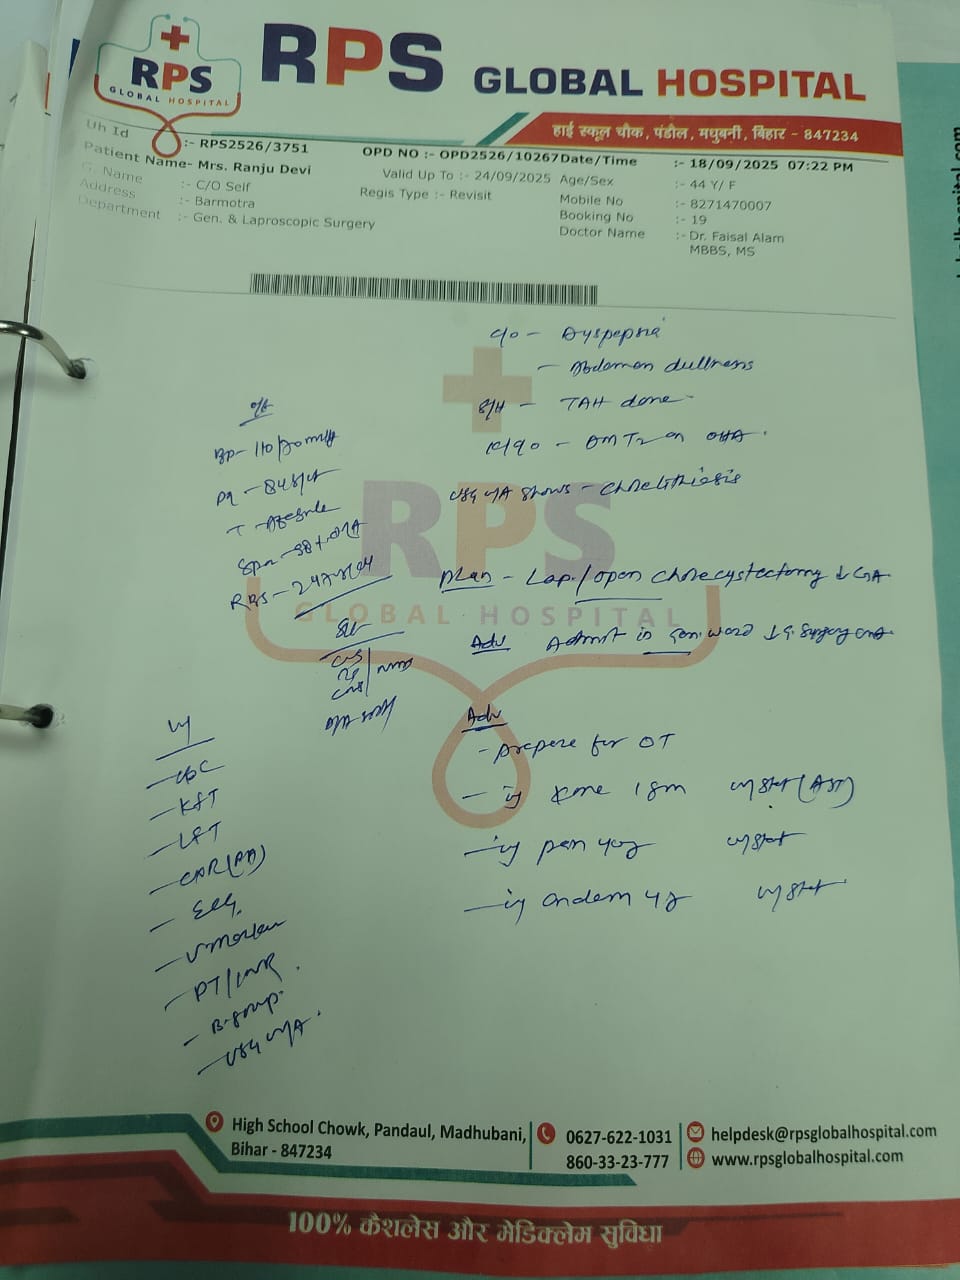 RPS GLOBAL HOSPITAL
RPS
GLOBAL HOSPITAL
हाई स्कूल चौक, पंडौल, मधुबनी, बिहार - 847234
Uh Id :- RPS2526/3751 OPD NO :- OPD2526/10267 Date/Time :- 18/09/2025 07:22 PM
Patient Name- Mrs. Ranju Devi Valid Up To :- 24/09/2025 Age/Sex :- 44 Y/ F
G. Name :- C/O Self Regis Type :- Revisit Mobile No :- 8271470007
Address :- Barmotra Booking No :- 19
Department :- Gen. & Laproscopic Surgery Doctor Name :- Dr. Faisal Alam
MBBS, MS
c/o - Dyspepsia
- Abdomen dullness
S/H - TAH done
K/c/o - DM T2 on OHA.
USG W/A shows - Cholelithiasis
Plan - Lap./open cholecystectomy ↓ GA.
Adv Admit in Gen. ward ↓ G. Surgery
O/E
BP- 110/
PR - 84
T -
RBS - 247
CVS
CNS
P/A soft
RPS
GLOBAL HOSPITAL
Adv
- prepare for OT
- inj Xone 1gm iv/stat (AST)
- inj pan 40 iv/stat
- inj ondem 4 iv/stat
- CBC
- KFT
- LFT
- CXR(PA)
- ECG
- V. marker
- PT/INR
- B. group
- USG W/A
High School Chowk, Pandaul, Madhubani,
Bihar - 847234
0627-622-1031
860-33-23-777
helpdesk@rpsglobalhospital.com
www.rpsglobalhospital.com
100% कैशलेस और मेडिक्लेम सुविधा